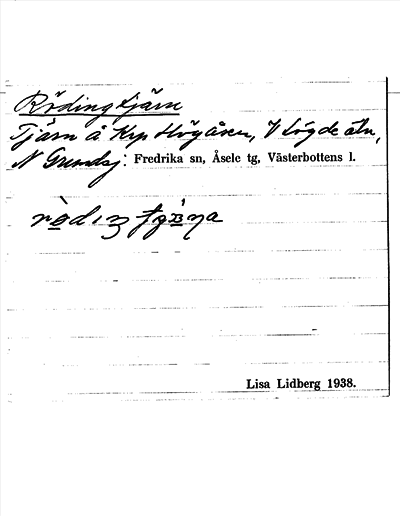 Rödingtjärn
Tjärn å Krp Högåsen, V Lögde älv,
N Grundsj: Fredrika sn, Åsele tg, Västerbottens l.
Lisa Lidberg 1938.